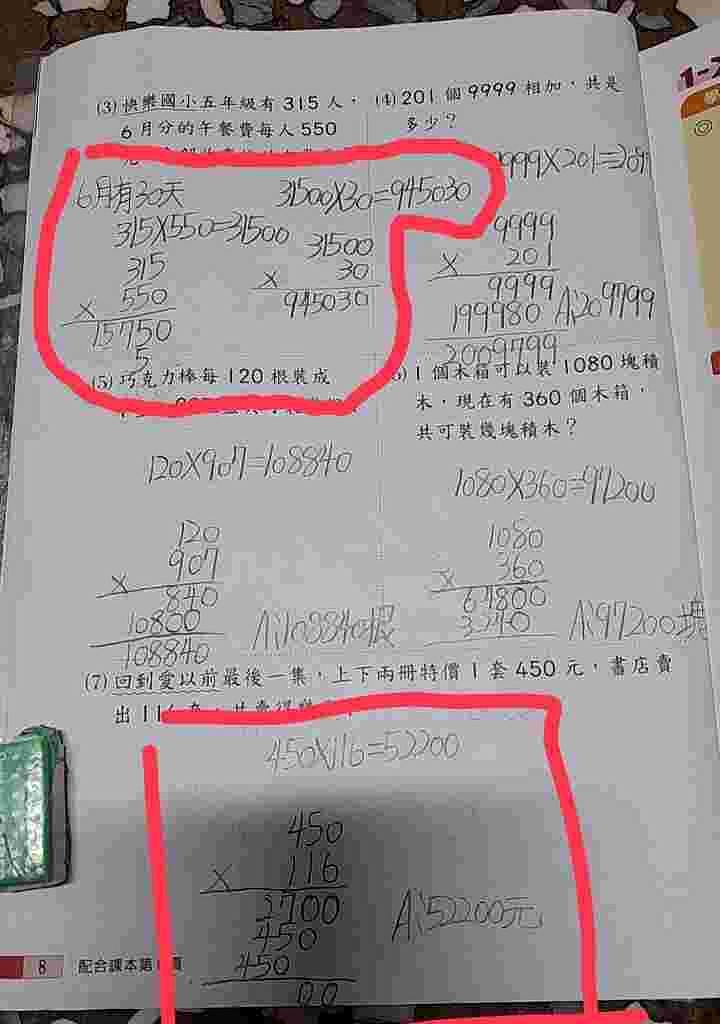 (3) 快樂國小五年級有 315 人，
6 月分的午餐費每人 550
6月有30天
31500X30=945030
315X550=31500
315
X 550
15750
5
31500
X 30
945030
(4) 201 個 9999 相加，共是
多少？
9999
X 201
9999
199980
2009799
(5) 巧克力棒每 120 根裝成
120X907=108840
120
X 907
840
10800
108840
A:108840根
1 個木箱可以裝 1080 塊積
木，現在有 360 個木箱，
共可裝幾塊積木？
1080X360=97200
1080
X 360
64800
3240
A:97200塊
(7) 回到愛以前最後一集，上下兩冊特價 1 套 450 元，書店賣
出 116
450X116=52200
450
X 116
2700
450
450
00
A:52200元
8 配合課本第 頁
1-2